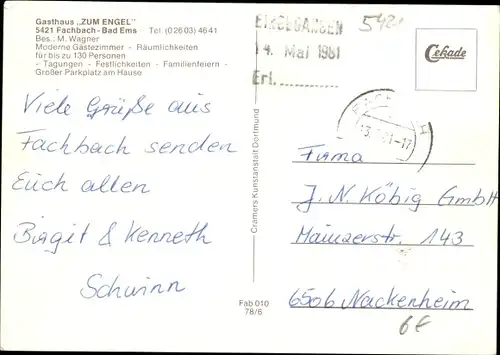 Gasthaus „ZUM ENGEL"
5421 Fachbach-Bad Ems Tel. (02603) 4641
Bes.: M. Wagner
Moderne Gästezimmer - Räumlichkeiten
für bis zu 130 Personen
- Tagungen - Festlichkeiten - Familienfeiern -
Großer Parkplatz am Haus
EINGEGANGEN
14. Mai 1981
Erl. ............
Cekade
Viele Grüße aus
Fachbach senden
Euch allen
Birgit & Kenneth
Schwinn
Cramers Kunstanstalt Dortmund
Fab 010
78/6
Firma
J. N. Köbig GmbH
Mainzerstr. 143
6506 Nackenheim
6€